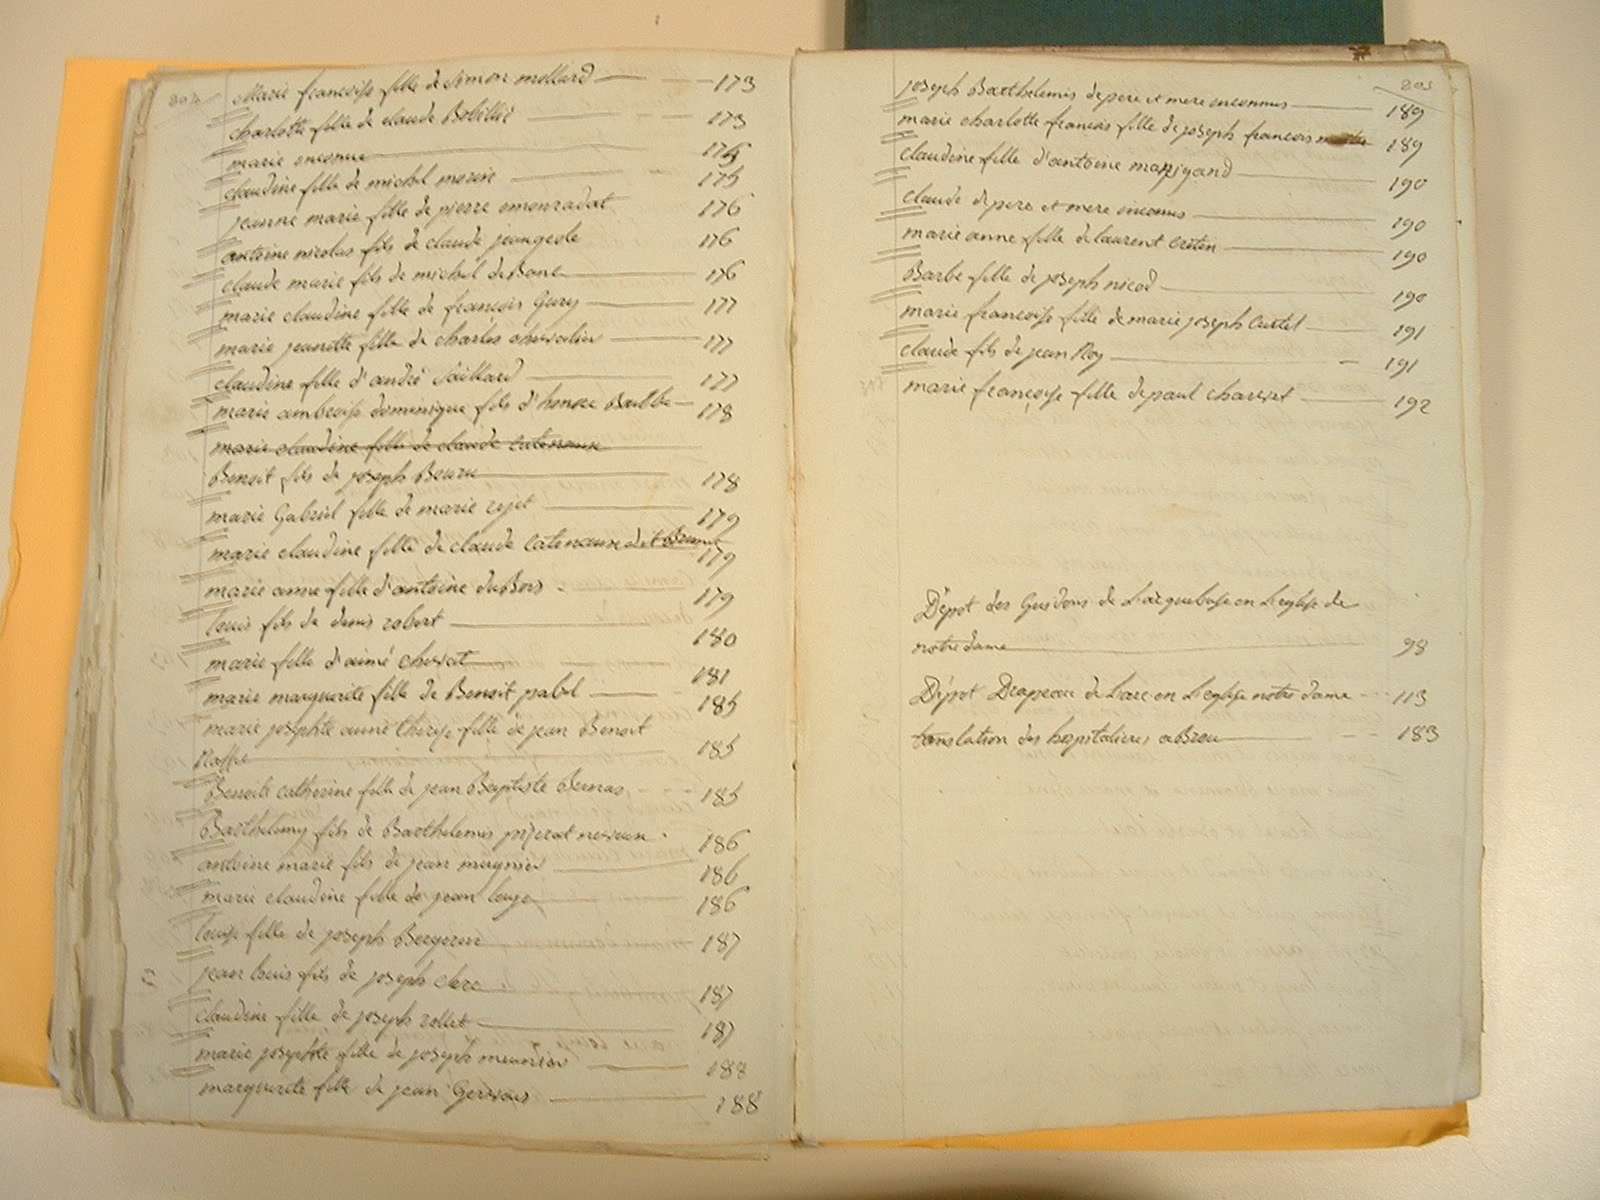 Marie françoise fille de Simon mollard 173
charlotte fille de claude Bobillié 173
marie inconnue 175
claudine fille de michel 175
jeanne marie fille de pierre 176
antoine nicolas fils de claude 176
claude marie fils de michel deBone 176
marie claudine fille de françois Gury 177
marie jeanette fille de charles chevalier 177
claudine fille d'andré Saillard 177
marie ambroise dominique fils d'honore 178
marie claudine fille de claude
Benoit fils de joseph 178
marie Gabriel fille de marie rejet 179
marie claudine fille de claude dit 179
marie anne fille d'antoine duBois 179
louis fils de denis robert 180
marie fille d'aimé 181
marie marguerite fille de Benoit 185
marie josephte anne therese fille de jean Benoit
Raffe 185
Benoite catherine fille de jean Baptiste Bernas 185
Barthelemy fils de Barthelemis 186
antoine marie fils de jean 186
marie claudine fille de jean 186
louise fille de joseph 187
jean louis fils de joseph clerc 187
claudine fille de joseph rollet 187
marie josephte fille de joseph meunier 188
marguerite fille de jean Gervais 188
203
joseph Barthelemis de pere et mere inconnus 189
marie charlotte francois fille de joseph francois 189
claudine fille d'antoine 190
claude de pere et mere inconus 190
marie anne fille de laurent cretin 190
Barbe fille de joseph nicod 190
marie françoise fille de marie joseph 191
claude fils de jean Roy 191
marie françoise fille de paul 192
Dépot des Guidons de L'arquebuse en L'eglise de
notre dame 98
Dépot Drapeau de L'arc en L'eglise notre dame 113
translation des hospitalieres a Brou 183